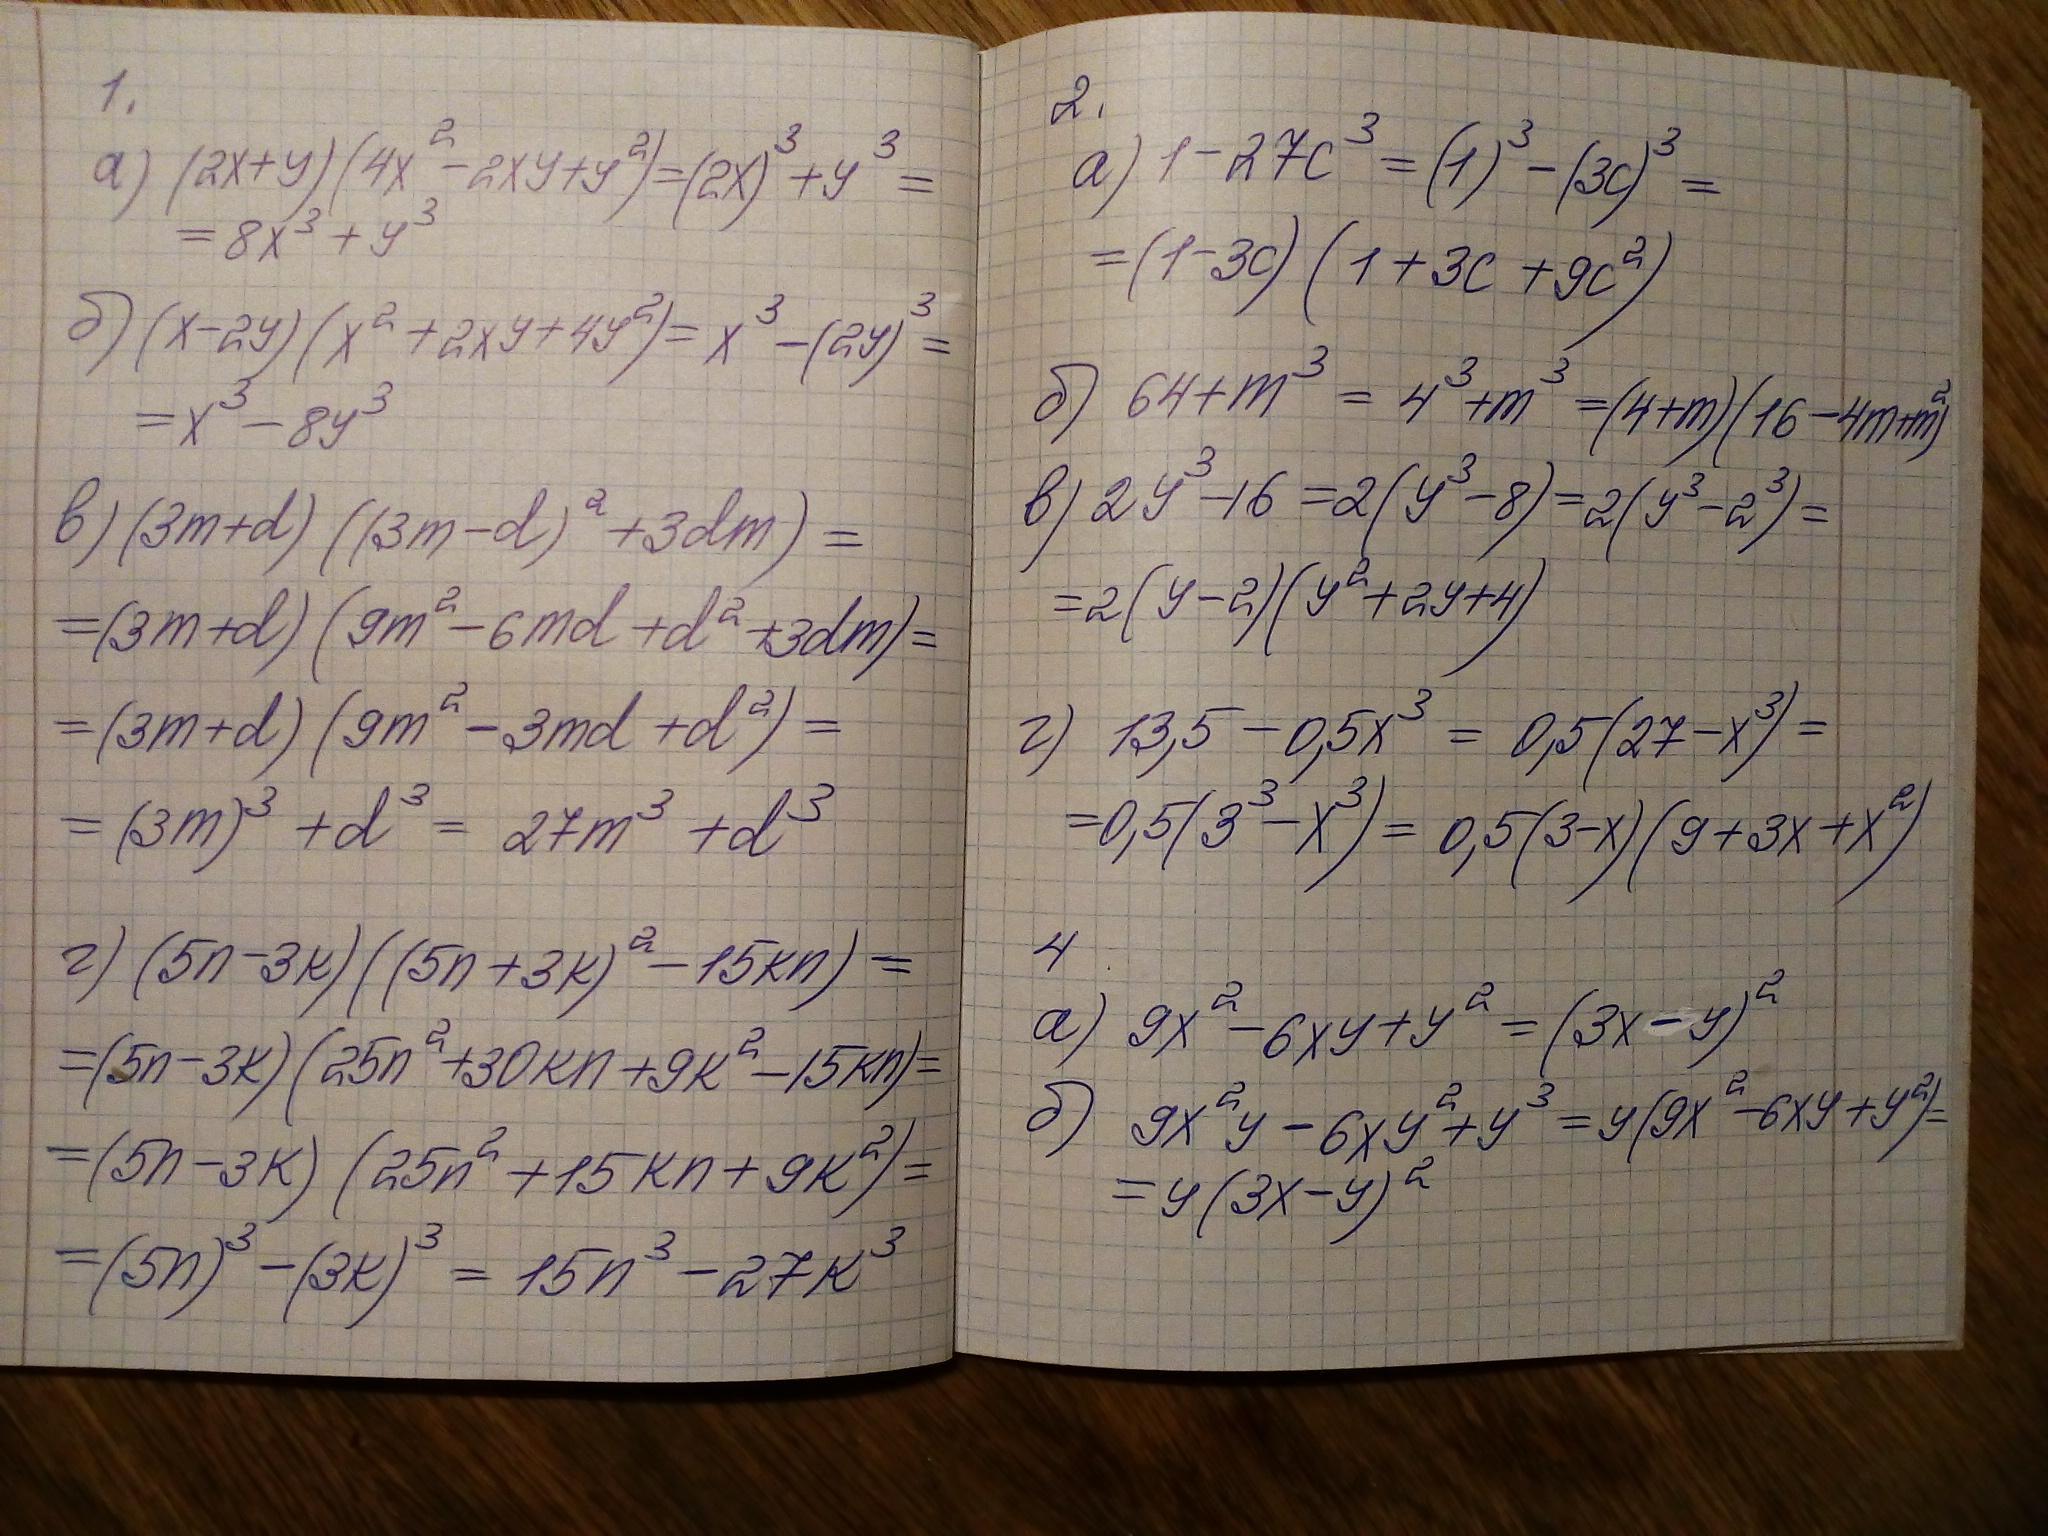 1.
а) (2x+y)(4x²-2xy+y²)=(2x)³+y³=
=8x³+y³
б) (x-2y)(x²+2xy+4y²)=x³-(2y)³=
=x³-8y³
в) (3m+d)((3m-d)²+3dm)=
=(3m+d)(9m²-6md+d²+3dm)=
=(3m+d)(9m²-3md+d²)=
=(3m)³+d³=27m³+d³
г) (5n-3k)((5n+3k)²-15kn)=
=(5n-3k)(25n²+30kn+9k²-15kn)=
=(5n-3k)(25n²+15kn+9k²)=
=(5n)³-(3k)³=15n³-27k³
2.
а) 1-27c³=(1)³-(3c)³=
=(1-3c)(1+3c+9c²)
б) 64+m³=4³+m³=(4+m)(16-4m+m²)
в) 2y³-16=2(y³-8)=2(y³-2³)=
=2(y-2)(y²+2y+4)
г) 13,5-0,5x³=0,5(27-x³)=
=0,5(3³-x³)=0,5(3-x)(9+3x+x²)
4
а) 9x²-6xy+y²=(3x-y)²
б) 9x²y-6xy²+y³=y(9x²-6xy+y²)=
=y(3x-y)²